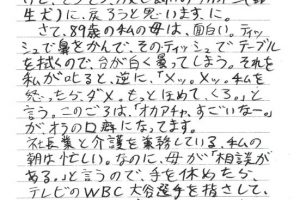 生犬)に戻ろうと思います。に。
さて、89歳の私の母は、面白い。ティッ
シュで鼻をかんで、そのティッシュでテーブル
を拭くので、台が白く曇ってしまう。それを
私が叱ると、逆に、「メッ。メッ。私を
怒ったら、ダメ。もっとほめて、くろ。」と
言う。このごろは、「オカアチャ、すごいなー。」
が、オラの口癖になってます。
社長業と介護を兼務している、私の
朝は忙しい。なのに、母が「相談が
ある。」と言うので、手を休めたら、
テレビのWBC大谷選手を指さして、